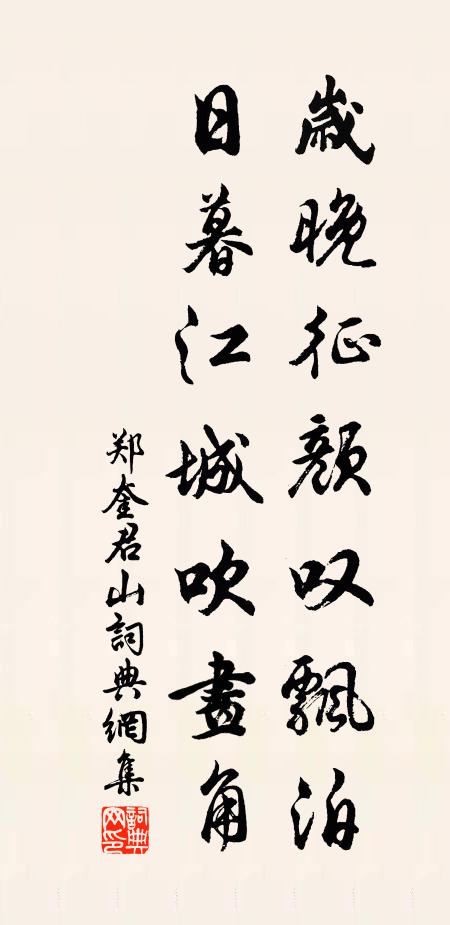 歲晚征顏叹飄泊
日暮江城吹畫角
郑奎君山詞典網集
詞典网印